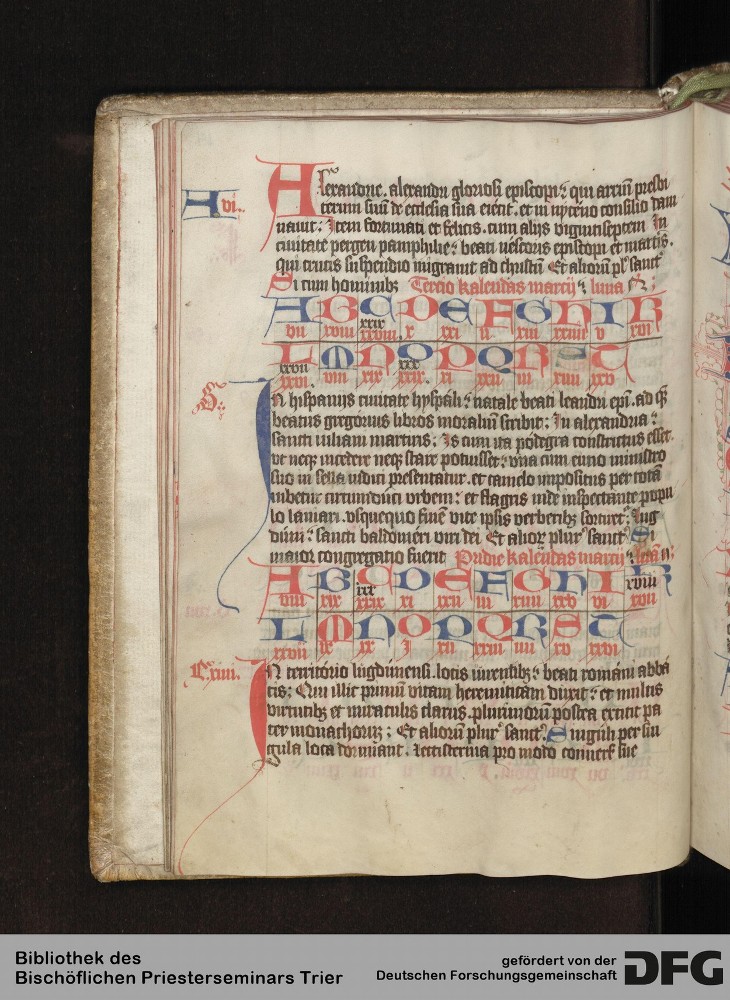 A vi.
Alexandrie. alexandri gloriosi episcopi. qui arriu presbi
terum suu de ecclesia sua eiecit. et in nyceno consilio dam
nauit. Item fortunati et felicis. cum alijs vigintiseptem In
ciuitate pergen pamphilie. beati nestoris episcopi et martis.
qui crucis suspendio migrauit ad christu Et alioru pl sanct
Si cum hominibz Tercio kalendas marcij luna
A B C D E F G H I K
vii xviii xxix xxviii. x xxi ii xiii xxiiii v xvi
L M N O P Q R S T
xxvii xxvi. viii xix xxx xxix. xi xxii iii xiiii xxv
G
In hispanijs ciuitate hyspali. natale beati leandri epi. ad que
beatus gregorius libros moraliu scribit. In alexandria.
sancti iuliani martiris. Is cum ita podegra constrictus esset.
vt neqz incedere neqz stare potuisset. vna cum euno ministro
suo in sella iudici presentatur. et camelo impositus per tota
iubetur circumduci vrbem. et flagris inde inspectante popu
lo laniari. vsquequo fine vite ipsis verberibz sortiret. lug
duni. sancti baldomeri viri dei. Et alior plur sanct Si
maior congregatio fuerit Pridie kalendas marcij luna
A B C D E F G H I K
viii xix xxx xxix xi xxii iii xiiii xxv vi xviii xvii
L M N O P Q R S T
xxvii ix xx i xii xxiii iiii xv xxvi
C xiiii.
In territorio lugdunensi. locis iurensibz. beati romani abba
tis. Qui illic primu vitam heremiticam duxit. et multis
virtutibz et miraculis clarus. plurimoru postea extitit pa
ter monachoru. Et alioru plur sanct. Singuli per sin
gula loca dormiant. Lectisternia pro modo conuers sue
Bibliothek des
Bischöflichen Priesterseminars Trier
gefördert von der
Deutschen Forschungsgemeinschaft
DFG